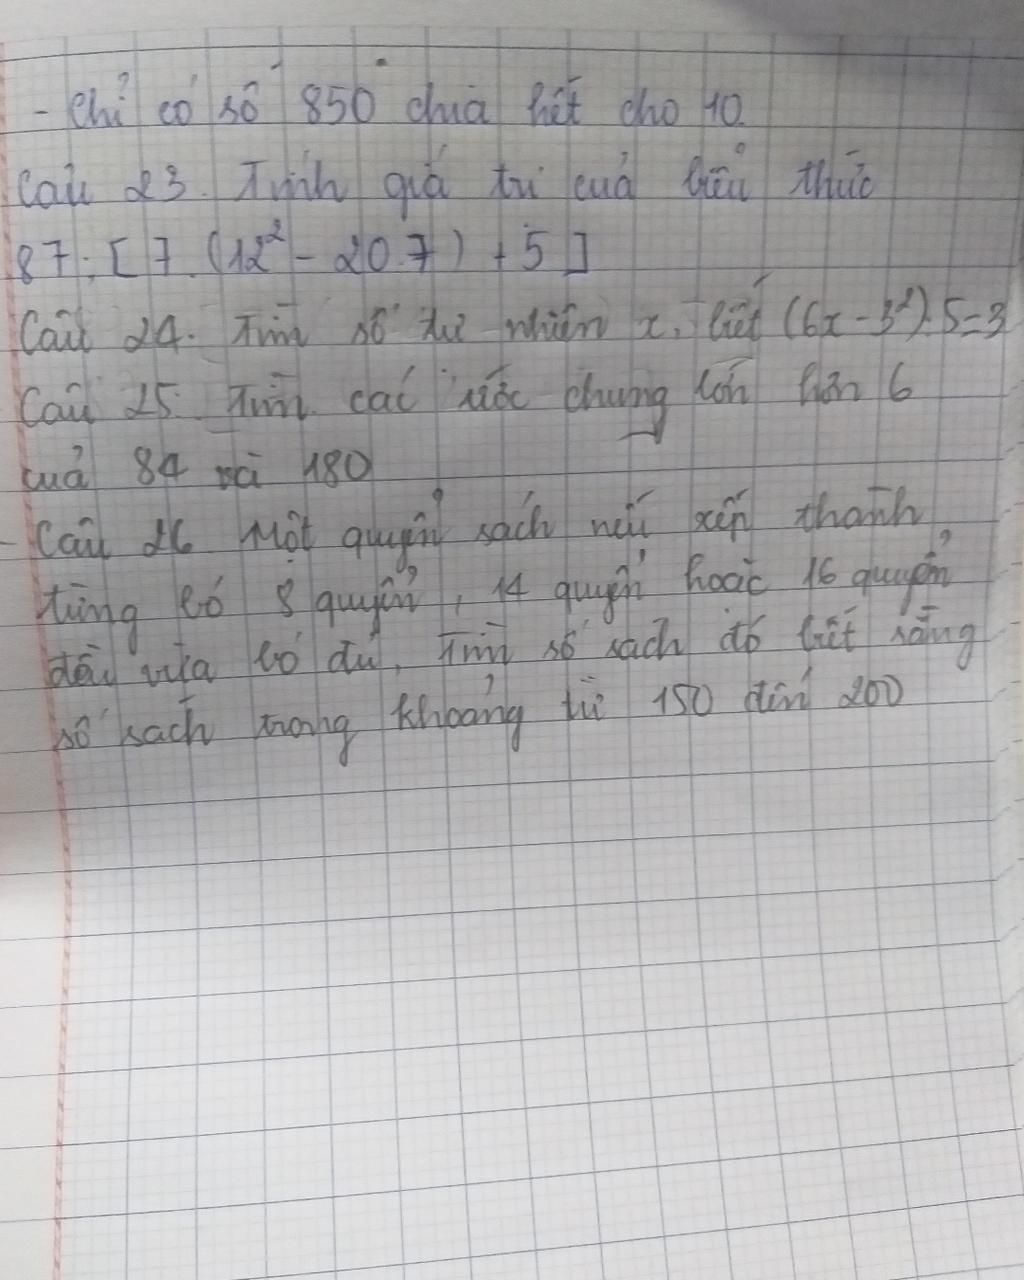 - Chỉ có số 850 chia hết cho 10.
Câu 23. Tính giá trị của biểu thức
87 : [ 7 . (12² - 20.7) + 5 ]
Câu 24. Tìm số tự nhiên x, biết (6x - 3²).5=3
Câu 25. Tìm các ước chung lớn hơn 6
của 84 và 180
- Câu 26 Một quyển sách nếu xếp thành
từng bó 8 quyển, 14 quyển hoặc 16 quyển
đều vừa bó đủ, Tìm số sách đó biết rằng
số sách trong khoảng từ 150 đến 200